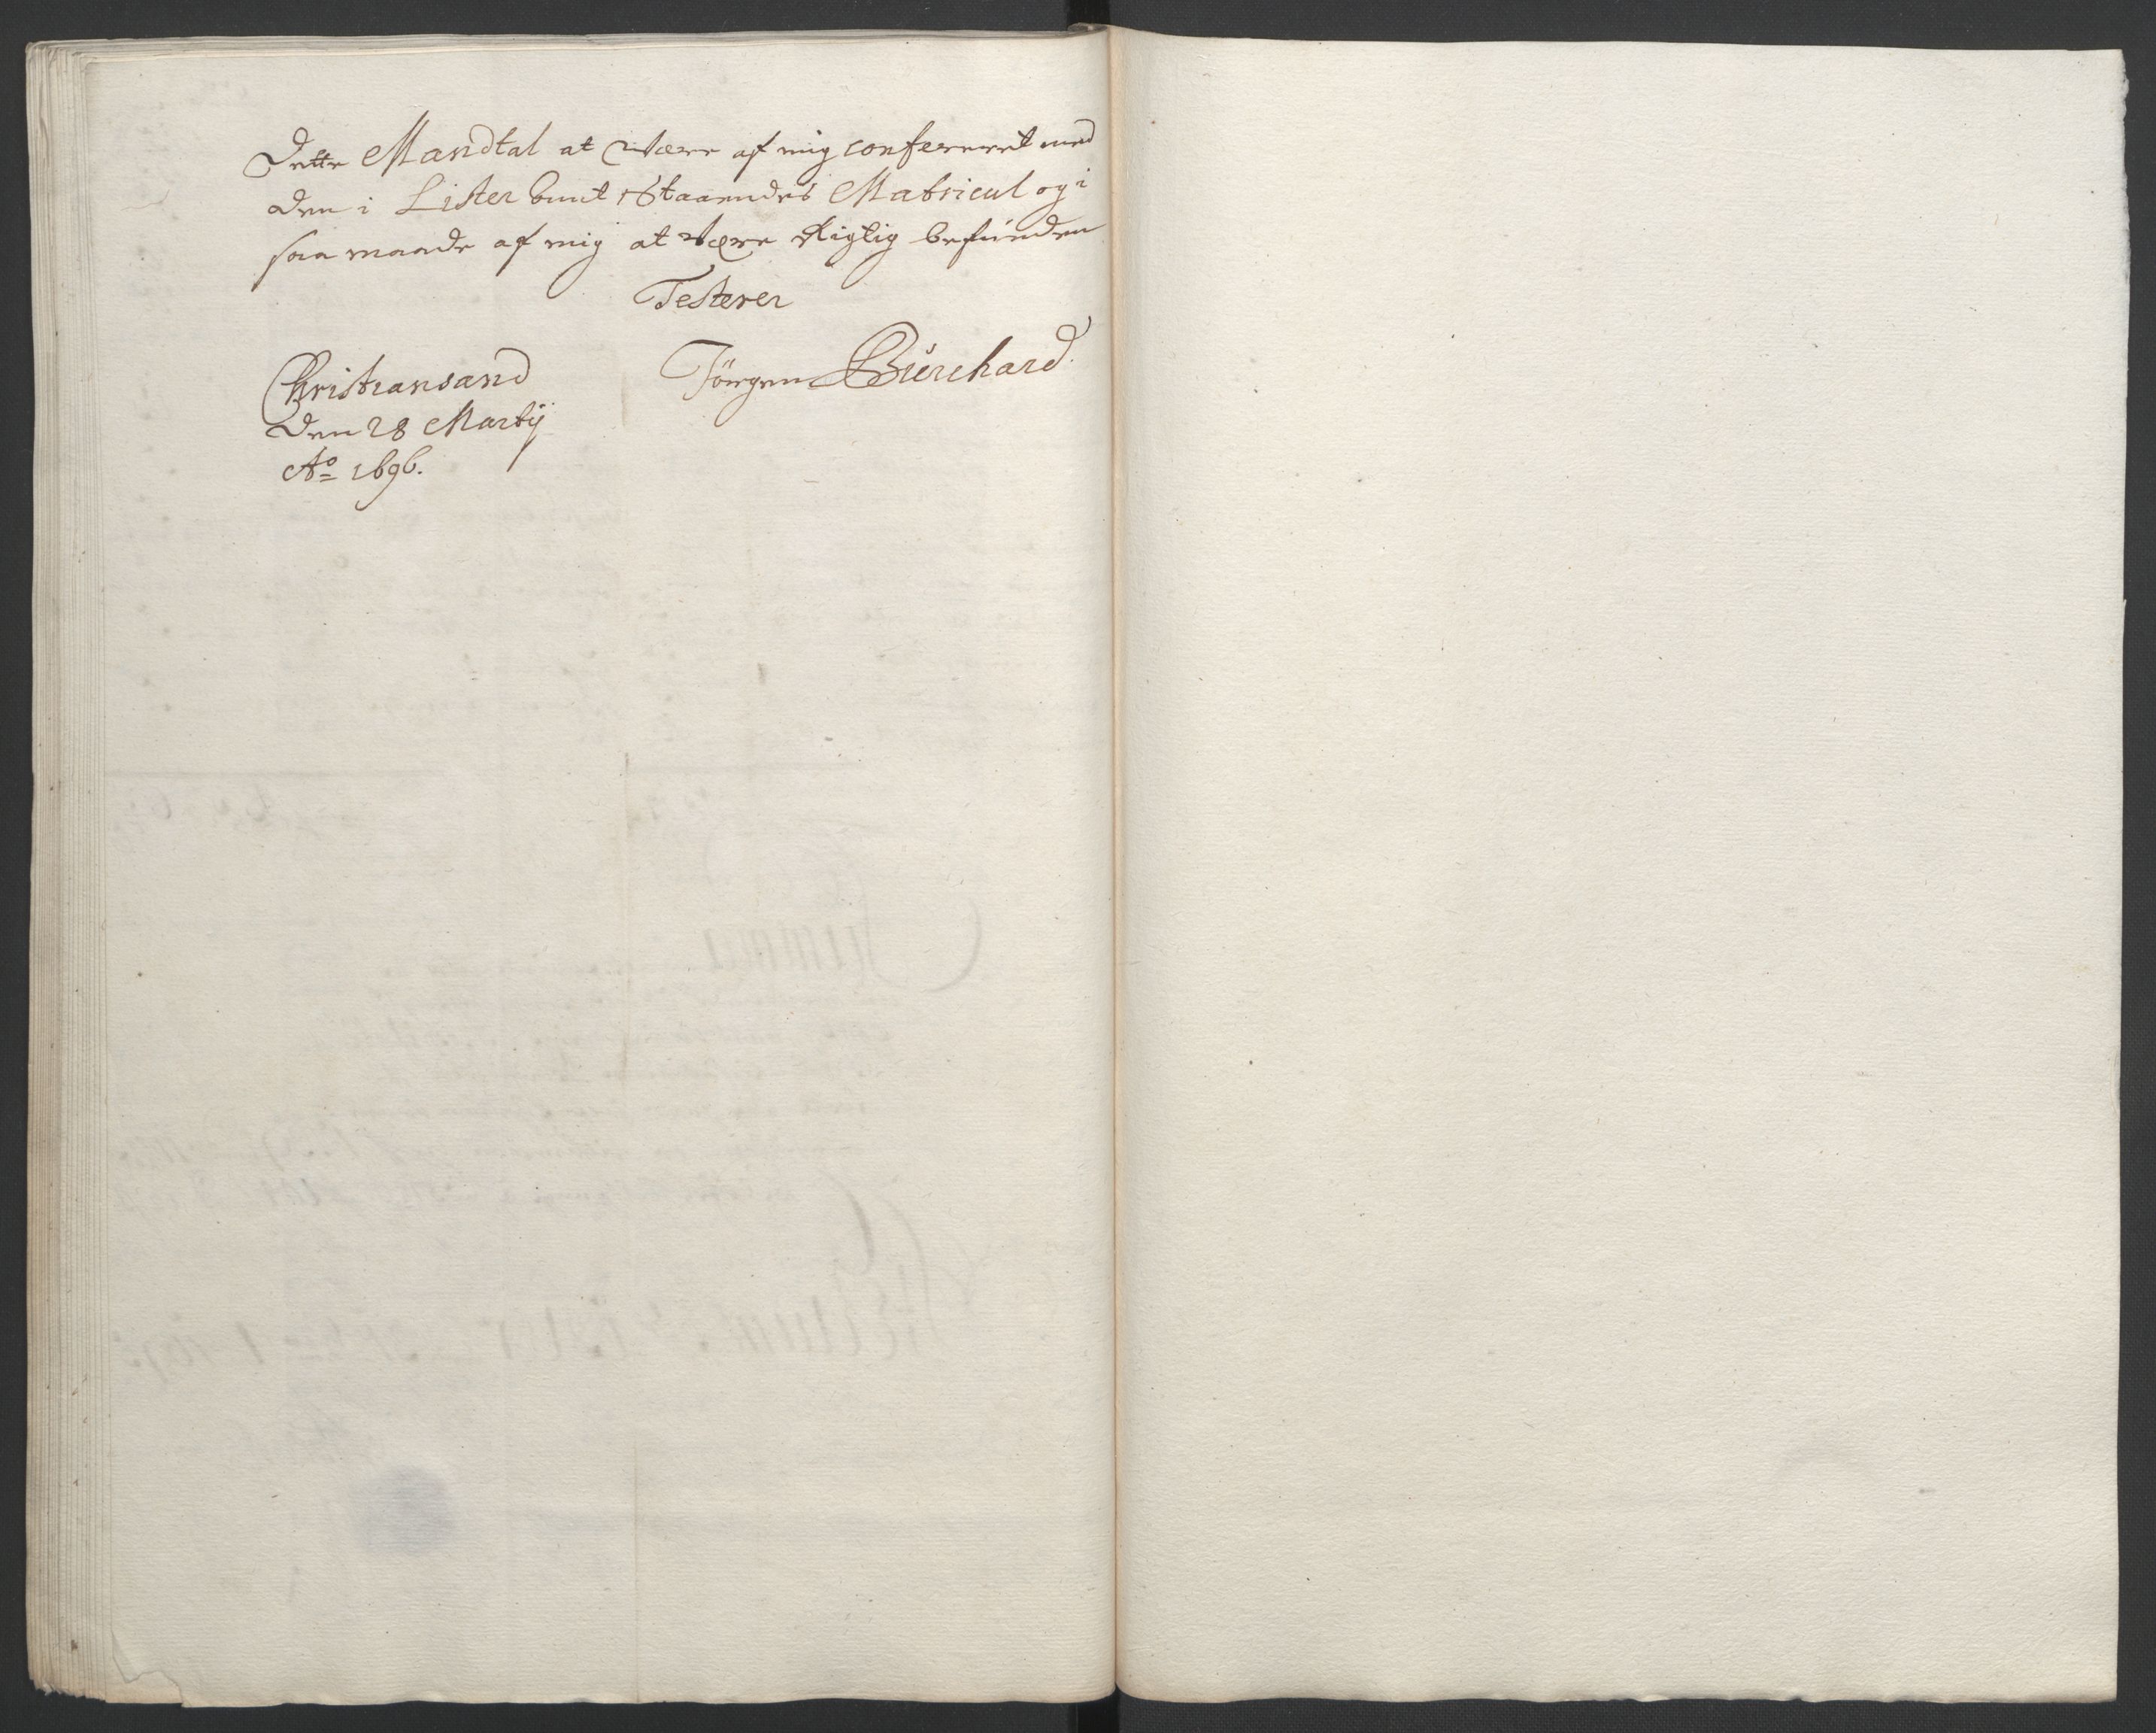 Dette Mandtal at Være af mig confereret med
den i Lister bunt Staaendes Matricul og i
saa maade af mig at være Rigtig befünden
Testerer
Jörgen Bürchard
Christiansand
den 28 Martij
Ao 1696.